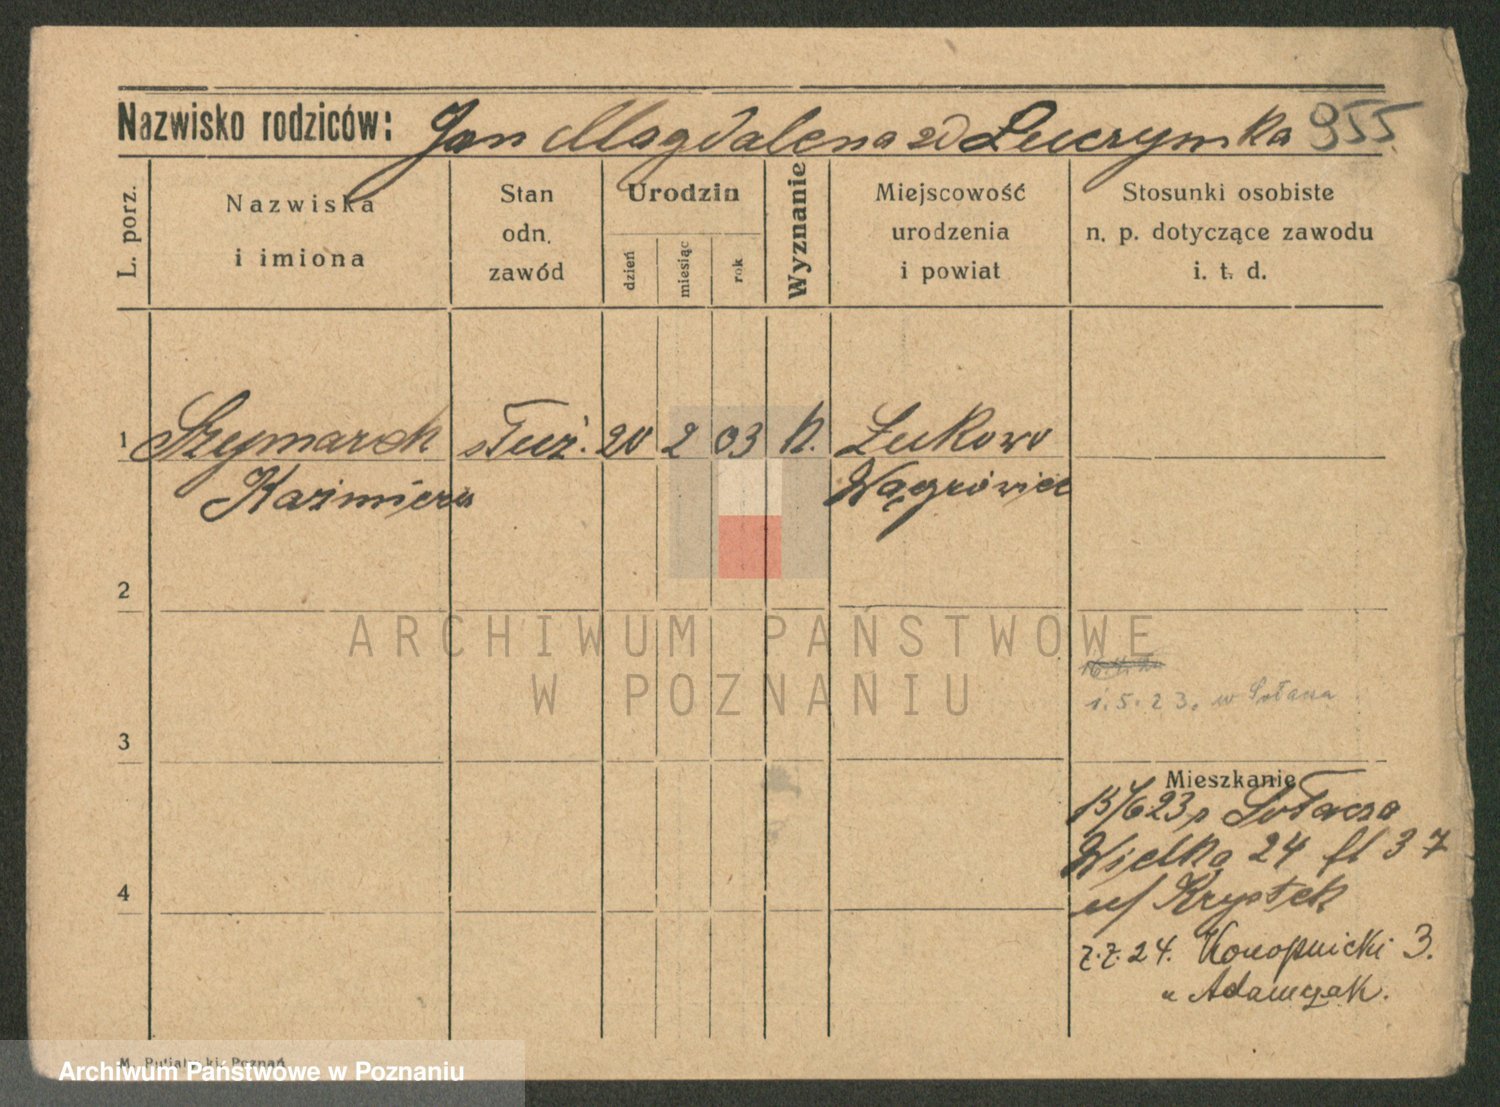 Nazwisko rodziców: Jan Magdalena zd Luczymka 955
L. porz.
Nazwiska
i imiona
Stan
odn.
zawód
Urodzin
dzień
miesiąc
rok
Wyznanie
Miejscowość
urodzenia
i powiat
Stosunki osobiste
n. p. dotyczące zawodu
i. t. d.
1 Szymarek służ. 20 2 03 k. Łukowo
Kazimiera Wągrówiec
2
ARCHIWUM PAŃSTWOWE
W POZNANIU
1.5.23. w
3
Mieszkanie
15/6 23 p Sołacza
Wielka 24 fl 37
u/ Krystek
7.7.24. Konopnicki 3.
u Adamczak.
4
M. Poznań
Archiwum Państwowe w Poznaniu